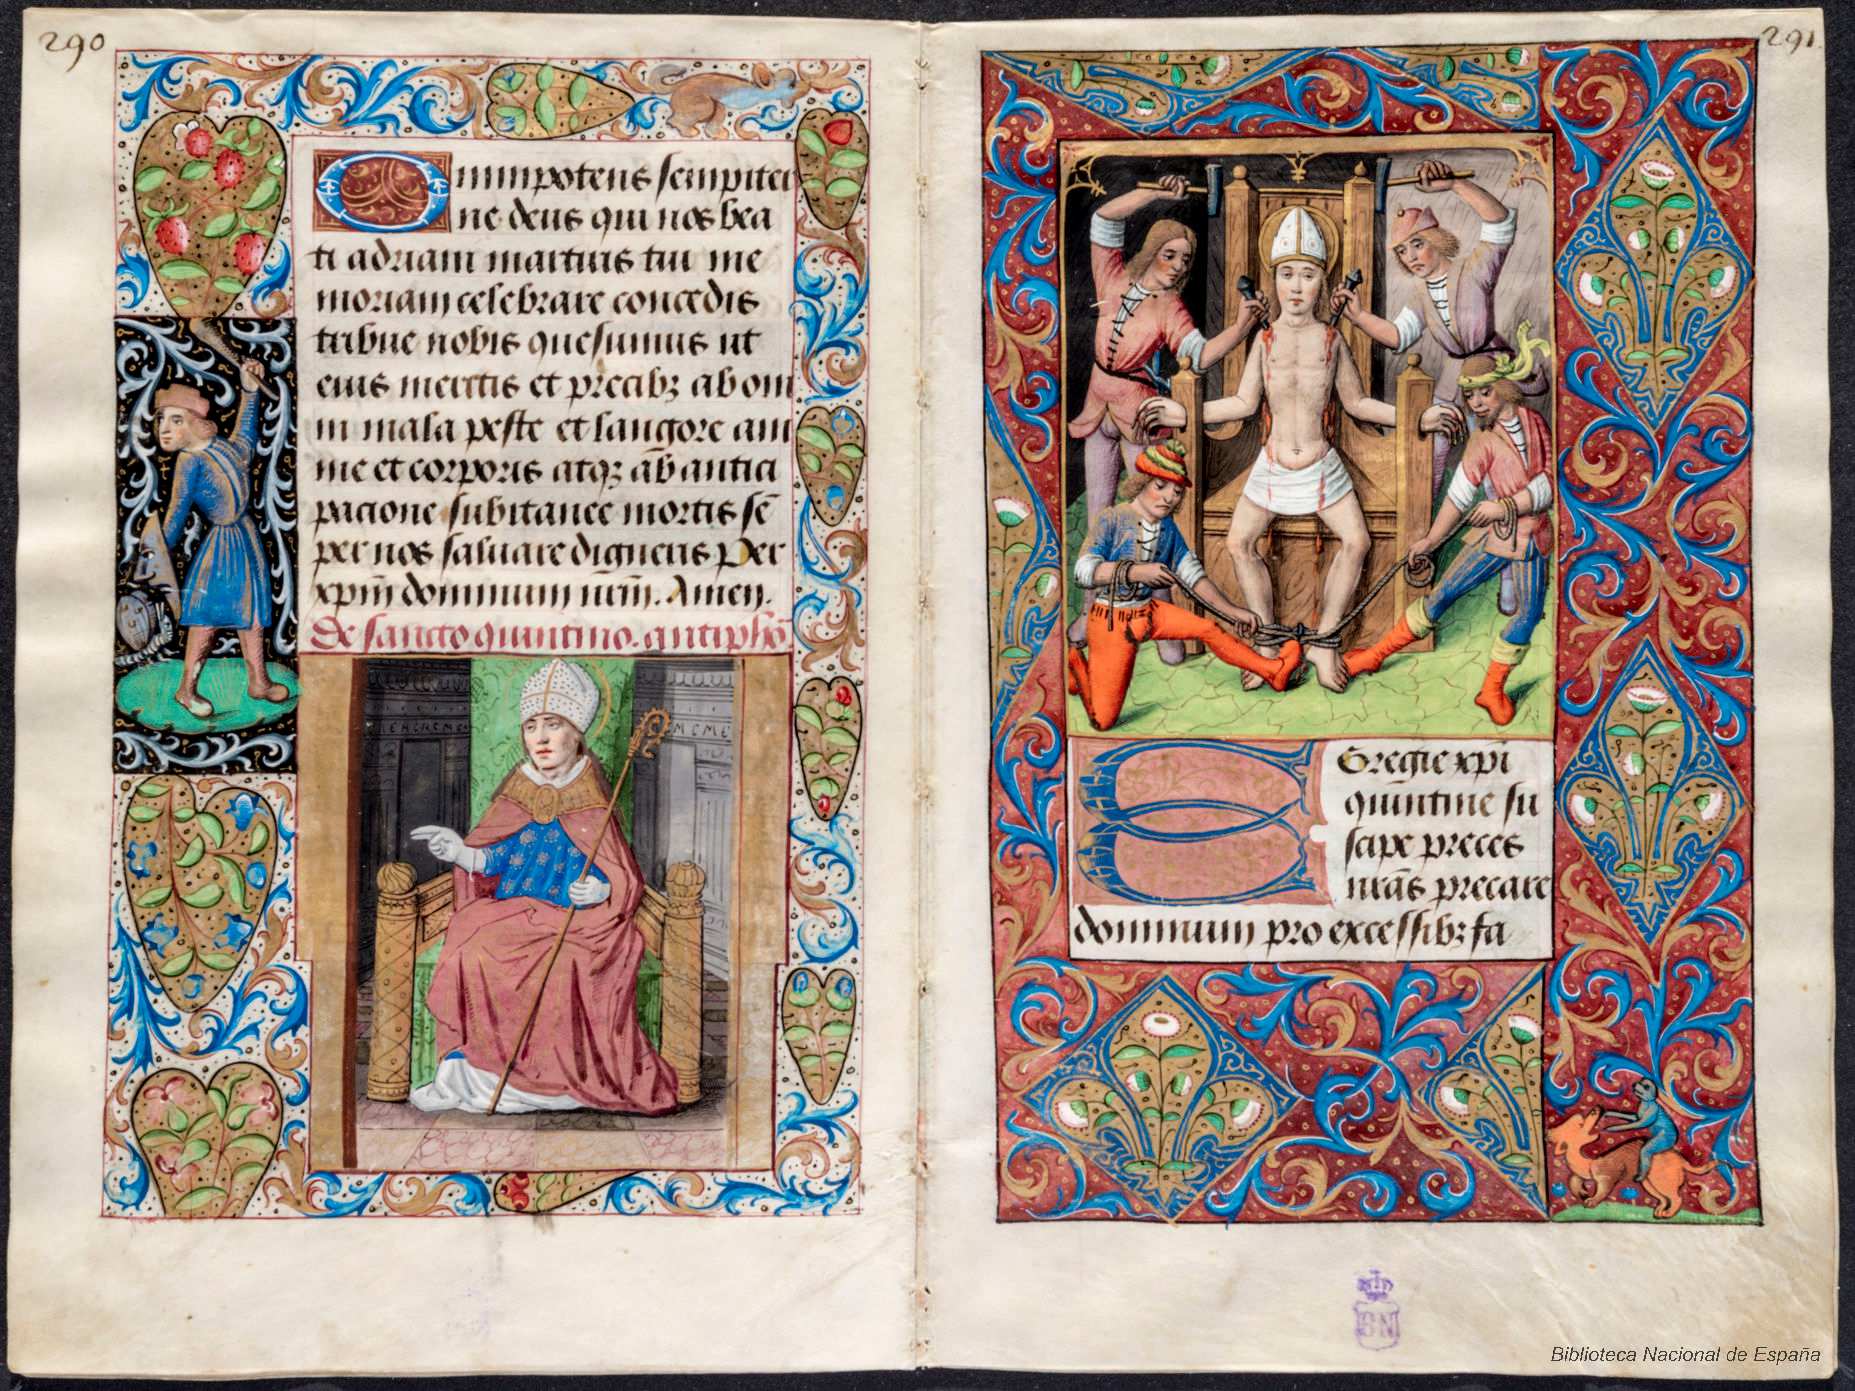 290
Omnipotens sempiter
ne deus qui nos bea
ti adriani martiris tui me
moriam celebrare concedis
tribue nobis quesumus ut
eius meritis et precibꝫ ab om
ni mala peste et langore ani
me et corporis atqꝫ ab antici
pacione subitanee mortis sē
per nos saluare digneris Per
xp̄m dominum nr̄m. Amen.
De sancto quintino. antiphō
291.
Egregie xp̄i
quintine su
scipe preces
nr̄as precare
dominum pro excessibꝫ fa
BN
Biblioteca Nacional de España